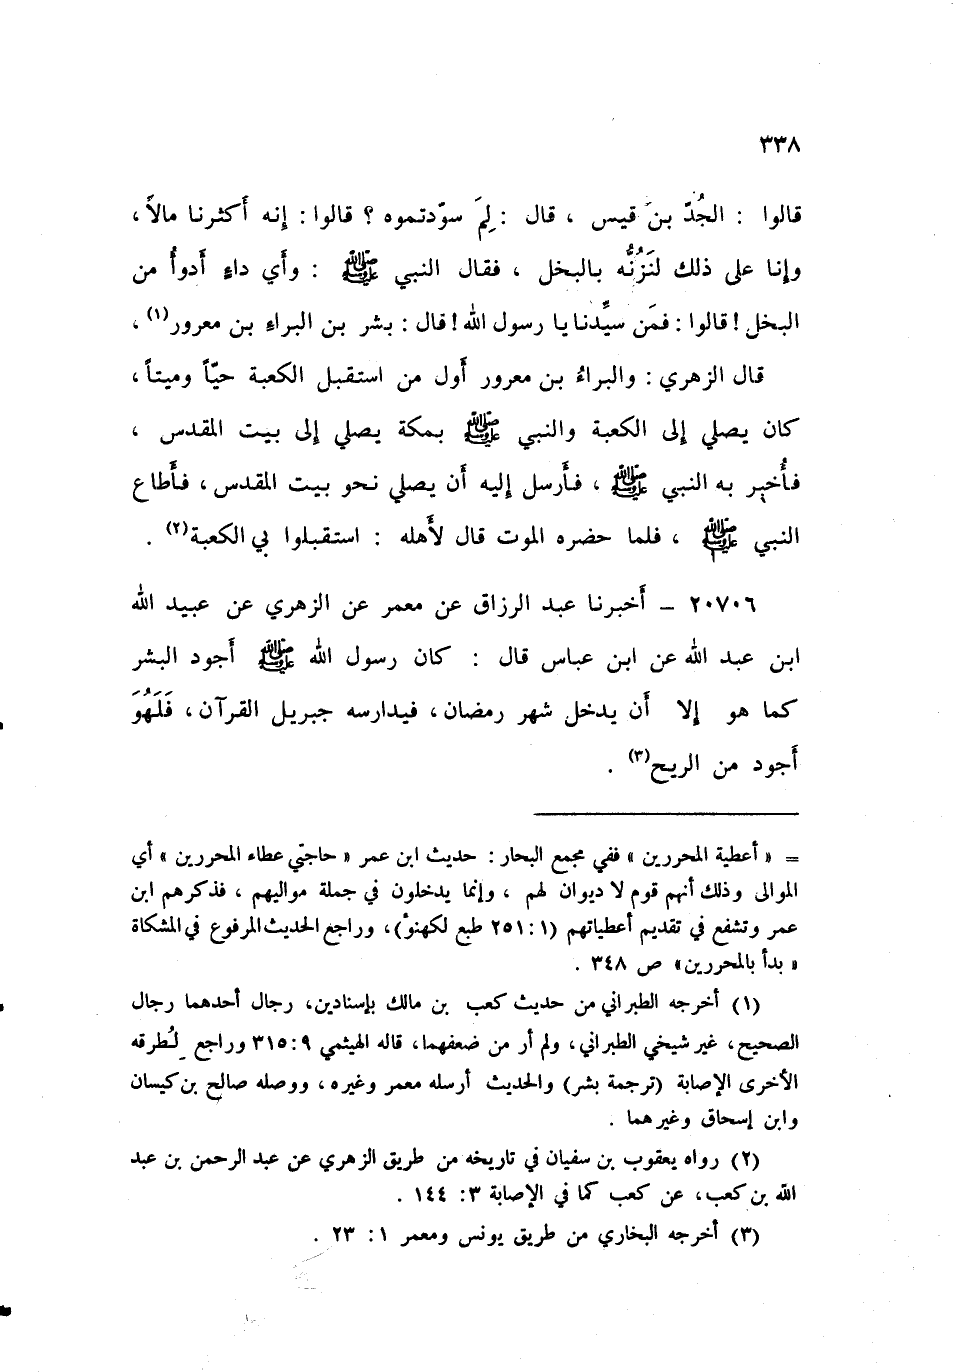 ٣٣٨
قالوا : الجُدّ بن قيس ، قال : لِمَ سوّدتموه ؟ قالوا : إنه أكثرنا مالاً ،
وإنا على ذلك لنَزُنُّه بالبخل ، فقال النبي ﷺ : وأي داءٍ أدوأُ من
البخل ! قالوا : فمَن سيِّدنا يا رسول الله ! قال : بشر بن البراء بن معرور(١) ،
قال الزهري : والبراءُ بن معرور أول من استقبل الكعبة حيّاً وميتاً ،
كان يصلي إلى الكعبة والنبي ﷺ بمكة يصلي إلى بيت المقدس ،
فأُخبِر به النبي ﷺ ، فأرسل إليه أن يصلي نحو بيت المقدس ، فأطاع
النبي ﷺ ، فلما حضره الموت قال لأهله : استقبلوا بي الكعبة(٢) .
٢٠٧٠٦ – أخبرنا عبد الرزاق عن معمر عن الزهري عن عبيد الله
ابن عبد الله عن ابن عباس قال : كان رسول الله ﷺ أجود البشر
كما هو إلا أن يدخل شهر رمضان ، فيدارسه جبريل القرآن ، فَلَهُوَ
أجود من الريح(٣) .
= « أعطية المحررين » ففي مجمع البحار : حديث ابن عمر « حاجتي عطاء المحررين » أي
الموالى وذلك أنهم قوم لا ديوان لهم ، وإنما يدخلون في جملة مواليهم ، فذكرهم ابن
عمر وتشفع في تقديم أعطياتهم (١ : ٢٥١ طبع لكهنؤ) ، وراجع الحديث المرفوع في المشكاة
« بدأ بالمحررين » ص ٣٤٨ .
(١) أخرجه الطبراني من حديث كعب بن مالك بإسنادين ، رجال أحدهما رجال
الصحيح ، غير شيخي الطبراني ، ولم أر من ضعفهما ، قاله الهيثمي ٩ : ٣١٥ وراجع لطُرقه
الأخرى الإصابة (ترجمة بشر) والحديث أرسله معمر وغيره ، ووصله صالح بن كيسان
وابن إسحاق وغيرهما .
(٢) رواه يعقوب بن سفيان في تاريخه من طريق الزهري عن عبد الرحمن بن عبد
الله بن كعب ، عن كعب كما في الإصابة ٣ : ١٤٤ .
(٣) أخرجه البخاري من طريق يونس ومعمر ١ : ٢٣ .